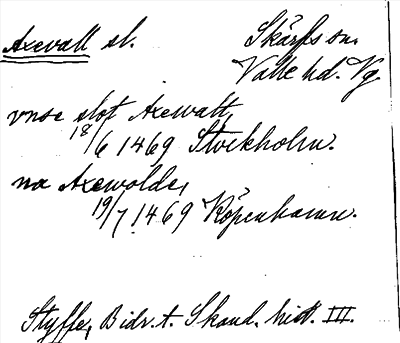 Axevall sl. Skärfs sn.
Valle hd. Vg
vnse slot Axewall,
18/6 1469 Stockholm.
na Axewolde,
19/7 1469 Köpenhamn.
Styffe, Bidr. t. Skand. hist. III.